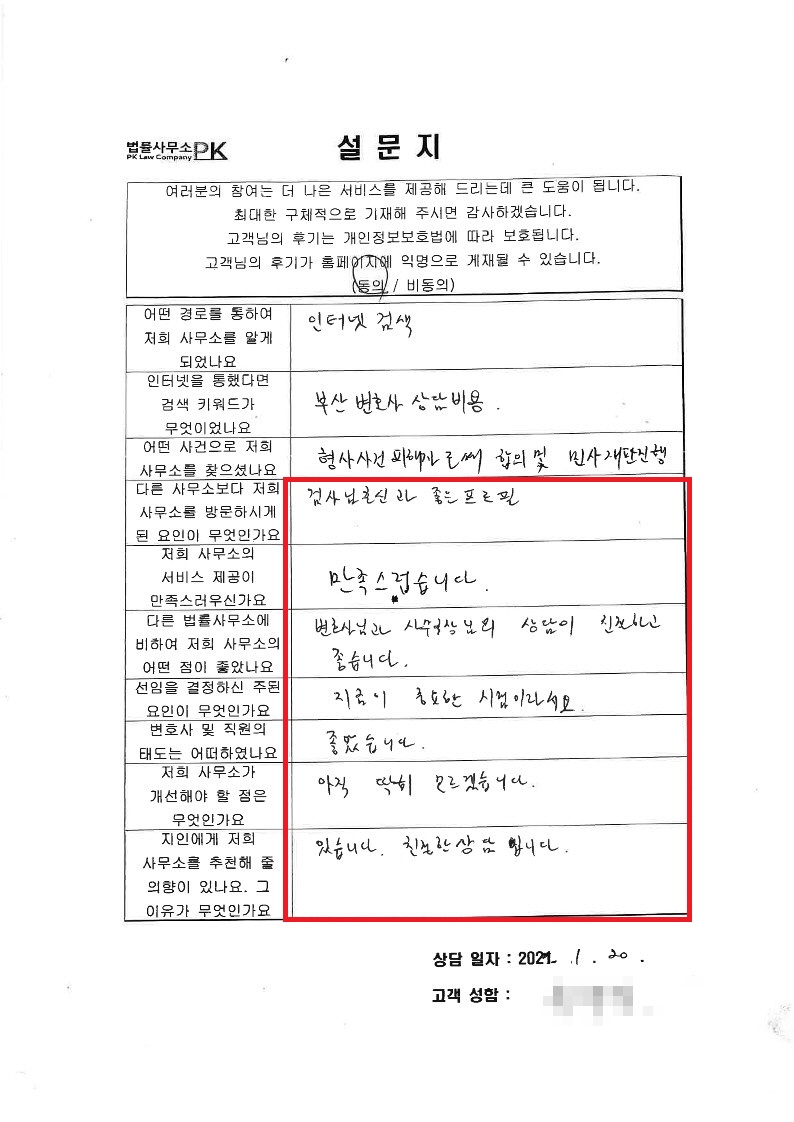 법률사무소PK
PK Law Company
설문지
여러분의 참여는 더 나은 서비스를 제공해 드리는데 큰 도움이 됩니다.
최대한 구체적으로 기재해 주시면 감사하겠습니다.
고객님의 후기는 개인정보보호법에 따라 보호됩니다.
고객님의 후기가 홈페이지에 익명으로 게재될 수 있습니다.
(동의 / 비동의)
어떤 경로를 통하여
저희 사무소를 알게
되었나요
인터넷 검색
인터넷을 통했다면
검색 키워드가
무엇이었나요
부산 변호사 상담비용.
어떤 사건으로 저희
사무소를 찾으셨나요
형사사건 피해자로써 합의 및 민사재판진행
다른 사무소보다 저희
사무소를 방문하시게
된 요인이 무엇인가요
검사님출신과 좋은프로필
저희 사무소의
서비스 제공이
만족스러우신가요
만족스럽습니다.
다른 법률사무소에
비하여 저희 사무소의
어떤 점이 좋았나요
변호사님과 사무장님의 상담이 친절하고
좋습니다.
선임을 결정하신 주된
요인이 무엇인가요
지금이 중요한 시점이라서요.
변호사 및 직원의
태도는 어떠하였나요
좋았습니다.
저희 사무소가
개선해야 할 점은
무엇인가요
아직 딱히 모르겠습니다.
지인에게 저희
사무소를 추천해 줄
의향이 있나요. 그
이유가 무엇인가요
있습니다. 친절한상담 입니다.
상담 일자 : 2022. 1. 20.
고객 성함 :